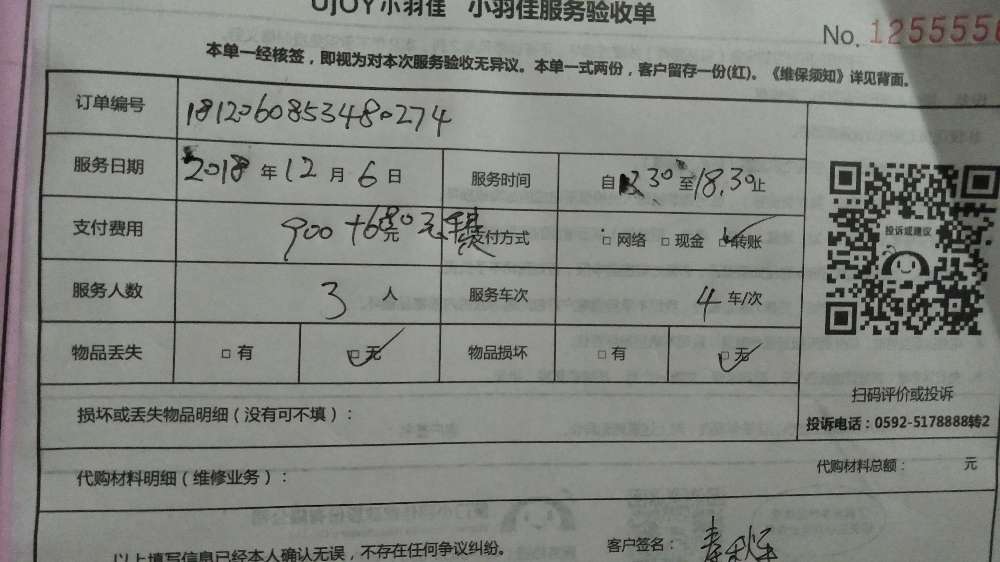 UJOY小羽佳 小羽佳服务验收单
No. 1255556
本单一经核签，即视为对本次服务验收无异议。本单一式两份，客户留存一份(红)。《维保须知》详见背面。
订单编号 1812060853480274
服务日期 2018 年 12 月 6 日 服务时间 自 30 至 18.30 止
支付费用 900+680元 元 支付方式 □ 网络 □ 现金 □ 转账
服务人数 3 人 服务车次 4 车/次
物品丢失 □ 有 □ 无 物品损坏 □ 有 □ 无
投诉或建议
扫码评价或投诉
投诉电话：0592-5178888转2
损坏或丢失物品明细（没有可不填）：
代购材料明细（维修业务）： 代购材料总额： 元
以上填写信息已经本人确认无误，不存在任何争议纠纷。 客户签名：